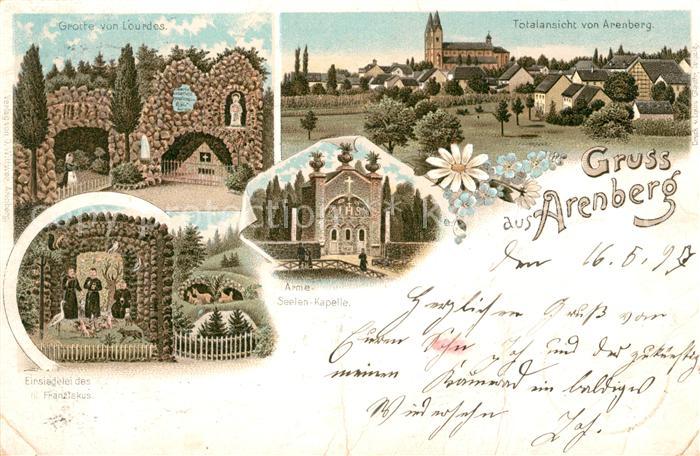 Grotte von Lourdes.
Totalansicht von Arenberg.
Gruss
aus Arenberg
IHS
Arme-
Seelen-Kapelle.
Einsiedelei des
hl. Franziskus.
den 16. 5. 97
Herzlichen Gruß von
Eurem Sohn Joh und
meinen Kamerad ein baldiges
Wiedersehn Joh.